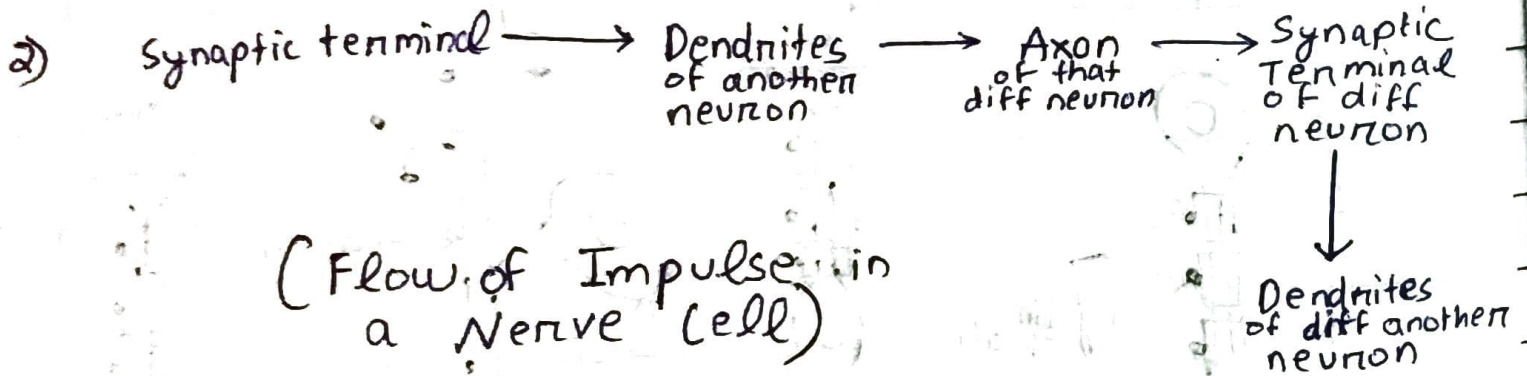 2)
Synaptic terminal
Dendrites
of another
neuron
Axon
of that
diff neuron
Synaptic
Terminal
of diff
neuron
Dendrites
of diff another
neuron
(Flow of Impulse in
a Nerve Cell)